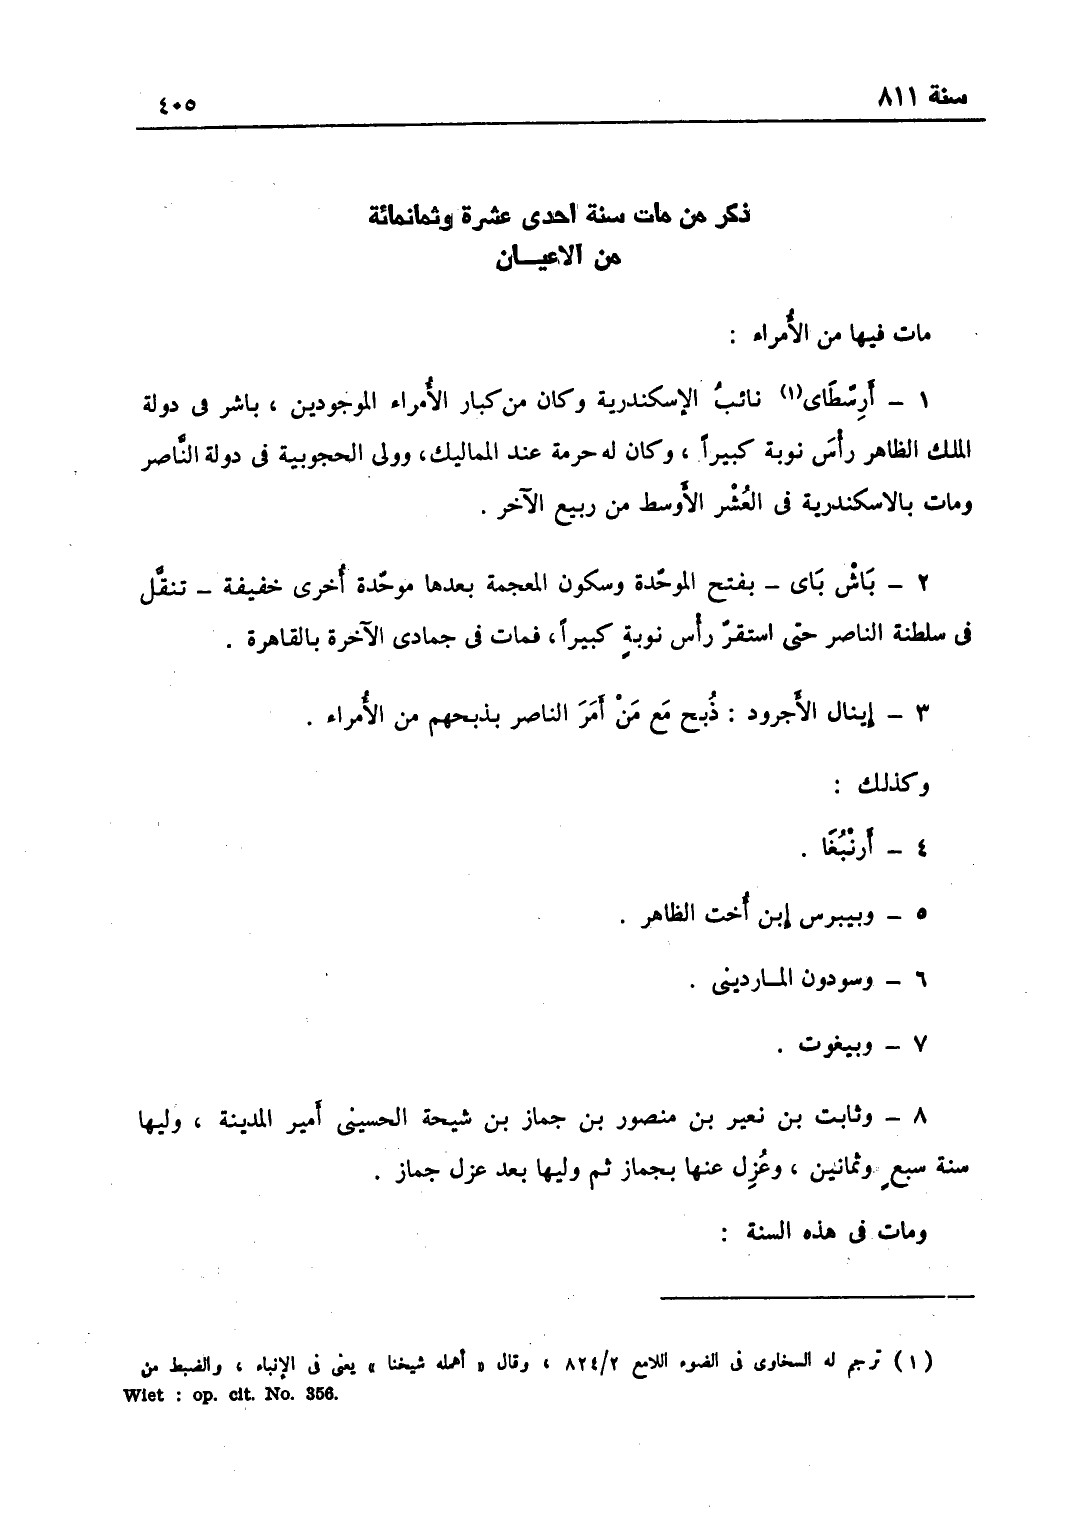 سنة ٨١١
٤٠٥
ذكر من مات سنة احدى عشرة وثمانمائة
من الاعيـــان
مات فيها من الأُمراء :
١ – أَرِسْطَاى(١) نائبُ الإسكندرية وكان من كبار الأُمراء الموجودين ، باشر فى دولة
الملك الظاهر رأْسَ نوبة كبيراً ، وكان له حرمة عند المماليك، وولى الحجوبية فى دولة النَّاصر
ومات بالاسكندرية فى العُشْر الأَوسط من ربيع الآخر .
٢ – بَاشْ بَاى – بفتح الموحّدة وسكون المعجمة بعدها موحّدة أُخرى خفيفة – تنقَّل
فى سلطنة الناصر حتى استقرّ رأْس نوبةٍ كبيراً، فمات فى جمادى الآخرة بالقاهرة .
٣ – إينال الأَجرود : ذُبح مَع مَنْ أَمَرَ الناصر بذبحهم من الأُمراء .
وكذلك :
٤ – أَرنْبُغَا .
٥ – وبيبرس إبن أُخت الظاهر .
٦ – وسودون المـاردينى .
٧ – وبيغوت .
٨ – وثابت بن نعير بن منصور بن جماز بن شيحة الحسينى أَمير المدينة ، وليها
سنة سبعٍ وثمانين ، وعُزِل عنها بجماز ثم وليها بعد عزل جماز .
ومات فى هذه السنة :
(١) ترجم له السخاوى فى الضوء اللامع ٨٢٤/٢ ، وقال « أهمله شيخنا » يعنى فى الإنباء ، والضبط من
Wiet : op. cit. No. 356.